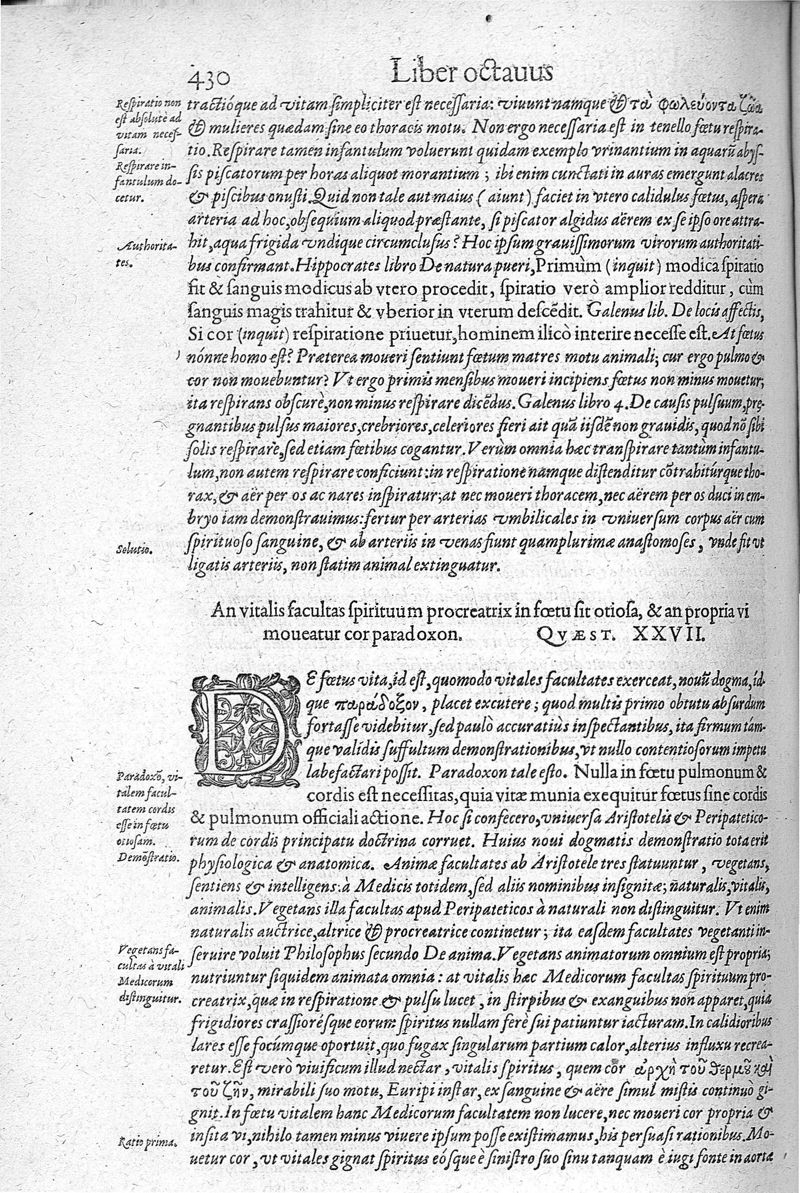 430
Liber octavus
Respiratio non
est absolutè ad
vitam neces-
saria.
Respirare in-
fantulum do-
cetur.
Authorita-
tes.
Solutio.
tractióque ad vitam simpliciter est necessaria: viuunt namque & τὰ φωλεύοντα ζῶα
& mulieres quædam sine eo thoracis motu. Non ergo necessaria est in tenello fœtu respira-
tio. Respirare tamen infantulum voluerunt quidam exemplo vrinantium in aquarũ abys-
sis piscatorum per horas aliquot morantium; ibi enim cunctati in auras emergunt alacres
& piscibus onusti. Quid non tale aut maius (aiunt) faciet in vtero calidulus fœtus, aspera
arteria ad hoc, obsequium aliquod præstante, si piscator algidus aërem ex se ipso ore attra-
hit, aqua frigida vndique circumclusus? Hoc ipsum grauissimorum virorum authoritati-
bus confirmant. Hippocrates libro De natura pueri, Primùm (inquit) modica spiratio
fit & sanguis modicus ab vtero procedit, spiratio verò amplior redditur, cùm
sanguis magis trahitur & vberior in vterum descẽdit. Galenus lib. De locis affectis,
Si cor (inquit) respiratione priuetur, hominem ilicò interire necesse est. At fœtus
nónne homo est? Præterea moueri sentiunt fœtum matres motu animali; cur ergo pulmo &
cor non mouebuntur? Vt ergo primis mensibus moueri incipiens fœtus non minus mouetur,
ita respirans obscurè, non minus respirare dicẽdus. Galenus libro 4. De causis pulsuum, prę-
gnantibus pulsus maiores, crebriores, celeriores fieri ait quã iisdẽ non grauidis, quod nõ sibi
solis respirare, sed etiam fœtibus cogantur. Verùm omnia hæc transpirare tantùm infantu-
lum, non autem respirare conficiunt: in respiratione namque distenditur cõtrahitúrque tho-
rax, & aër per os ac nares inspiratur; at nec moueri thoracem, nec aërem per os duci in em-
bryo iam demonstrauimus: fertur per arterias vmbilicales in vniuersum corpus aër cum
spirituoso sanguine, & ab arteriis in venas fiunt quamplurimæ anastomoses, vnde fit vt
ligatis arteriis, non statim animal extinguatur.
An vitalis facultas spirituum procreatrix in fœtu sit otiosa, & an propria vi
moueatur cor paradoxon. QVÆST. XXVII.
Paradoxõ, vi-
talem facul-
tatem cordis
esse in fœtu
otiosam.
Demõstratio.
Vegetans fa-
cultas à vitali
Medicorum
distinguitur.
Ratio prima.
DE fœtus vita, id est, quomodo vitales facultates exerceat, nouũ dogma, id-
que παράδοξον, placet excutere; quod multis primo obtutu absurdum
fortasse videbitur, sed paulò accuratiùs inspectantibus, ita firmum tám-
que validis suffultum demonstrationibus, vt nullo contentiosorum impetu
labefactari possit. Paradoxon tale esto. Nulla in fœtu pulmonum &
cordis est necessitas, quia vitæ munia exequitur fœtus sine cordis
& pulmonum officiali actione. Hoc si confecero, vniuersa Aristotelis & Peripatetico-
rum de cordis principatu doctrina corruet. Huius noui dogmatis demonstratio tota erit
physiologica & anatomica. Animæ facultates ab Aristotele tres statuuntur, vegetans,
sentiens & intelligens: à Medicis totidem, sed aliis nominibus insignitæ; naturalis, vitalis,
animalis. Vegetans illa facultas apud Peripateticos à naturali non distinguitur. Vt enim
naturalis auctrice, altrice & procreatrice continetur; ita easdem facultates vegetanti in-
seruire voluit Philosophus secundo De anima. Vegetans animatorum omnium est propria;
nutriuntur siquidem animata omnia: at vitalis hæc Medicorum facultas spirituum pro-
creatrix, quæ in respiratione & pulsu lucet, in stirpibus & exanguibus non apparet, quia
frigidiores crassiorésque eorum spiritus nullam ferè sui patiuntur iacturam. In calidioribus
lares esse focúmque oportuit, quo fugax singularum partium calor, alterius influxu recrea-
retur. Est verò viuificum illud nectar, vitalis spiritus, quem còr ἀρχὴ τοῦ θερμοῦ καὶ
τοῦ ζῆν, mirabili suo motu, Euripi instar, ex sanguine & aëre simul mistis continuò gi-
gnit. In fœtu vitalem hanc Medicorum facultatem non lucere, nec moueri cor propria &
insita vi, nihilo tamen minus viuere ipsum posse existimamus, his persuasi rationibus. Mo-
uetur cor, vt vitales gignat spiritus eósque è sinistro suo sinu tanquam è iugi fonte in aorta